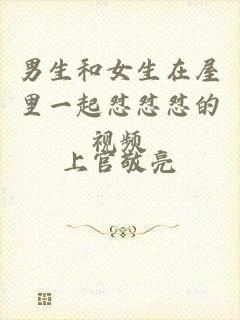 男生和女生在屋
里一起怼怼怼的
视频
上官敬亮